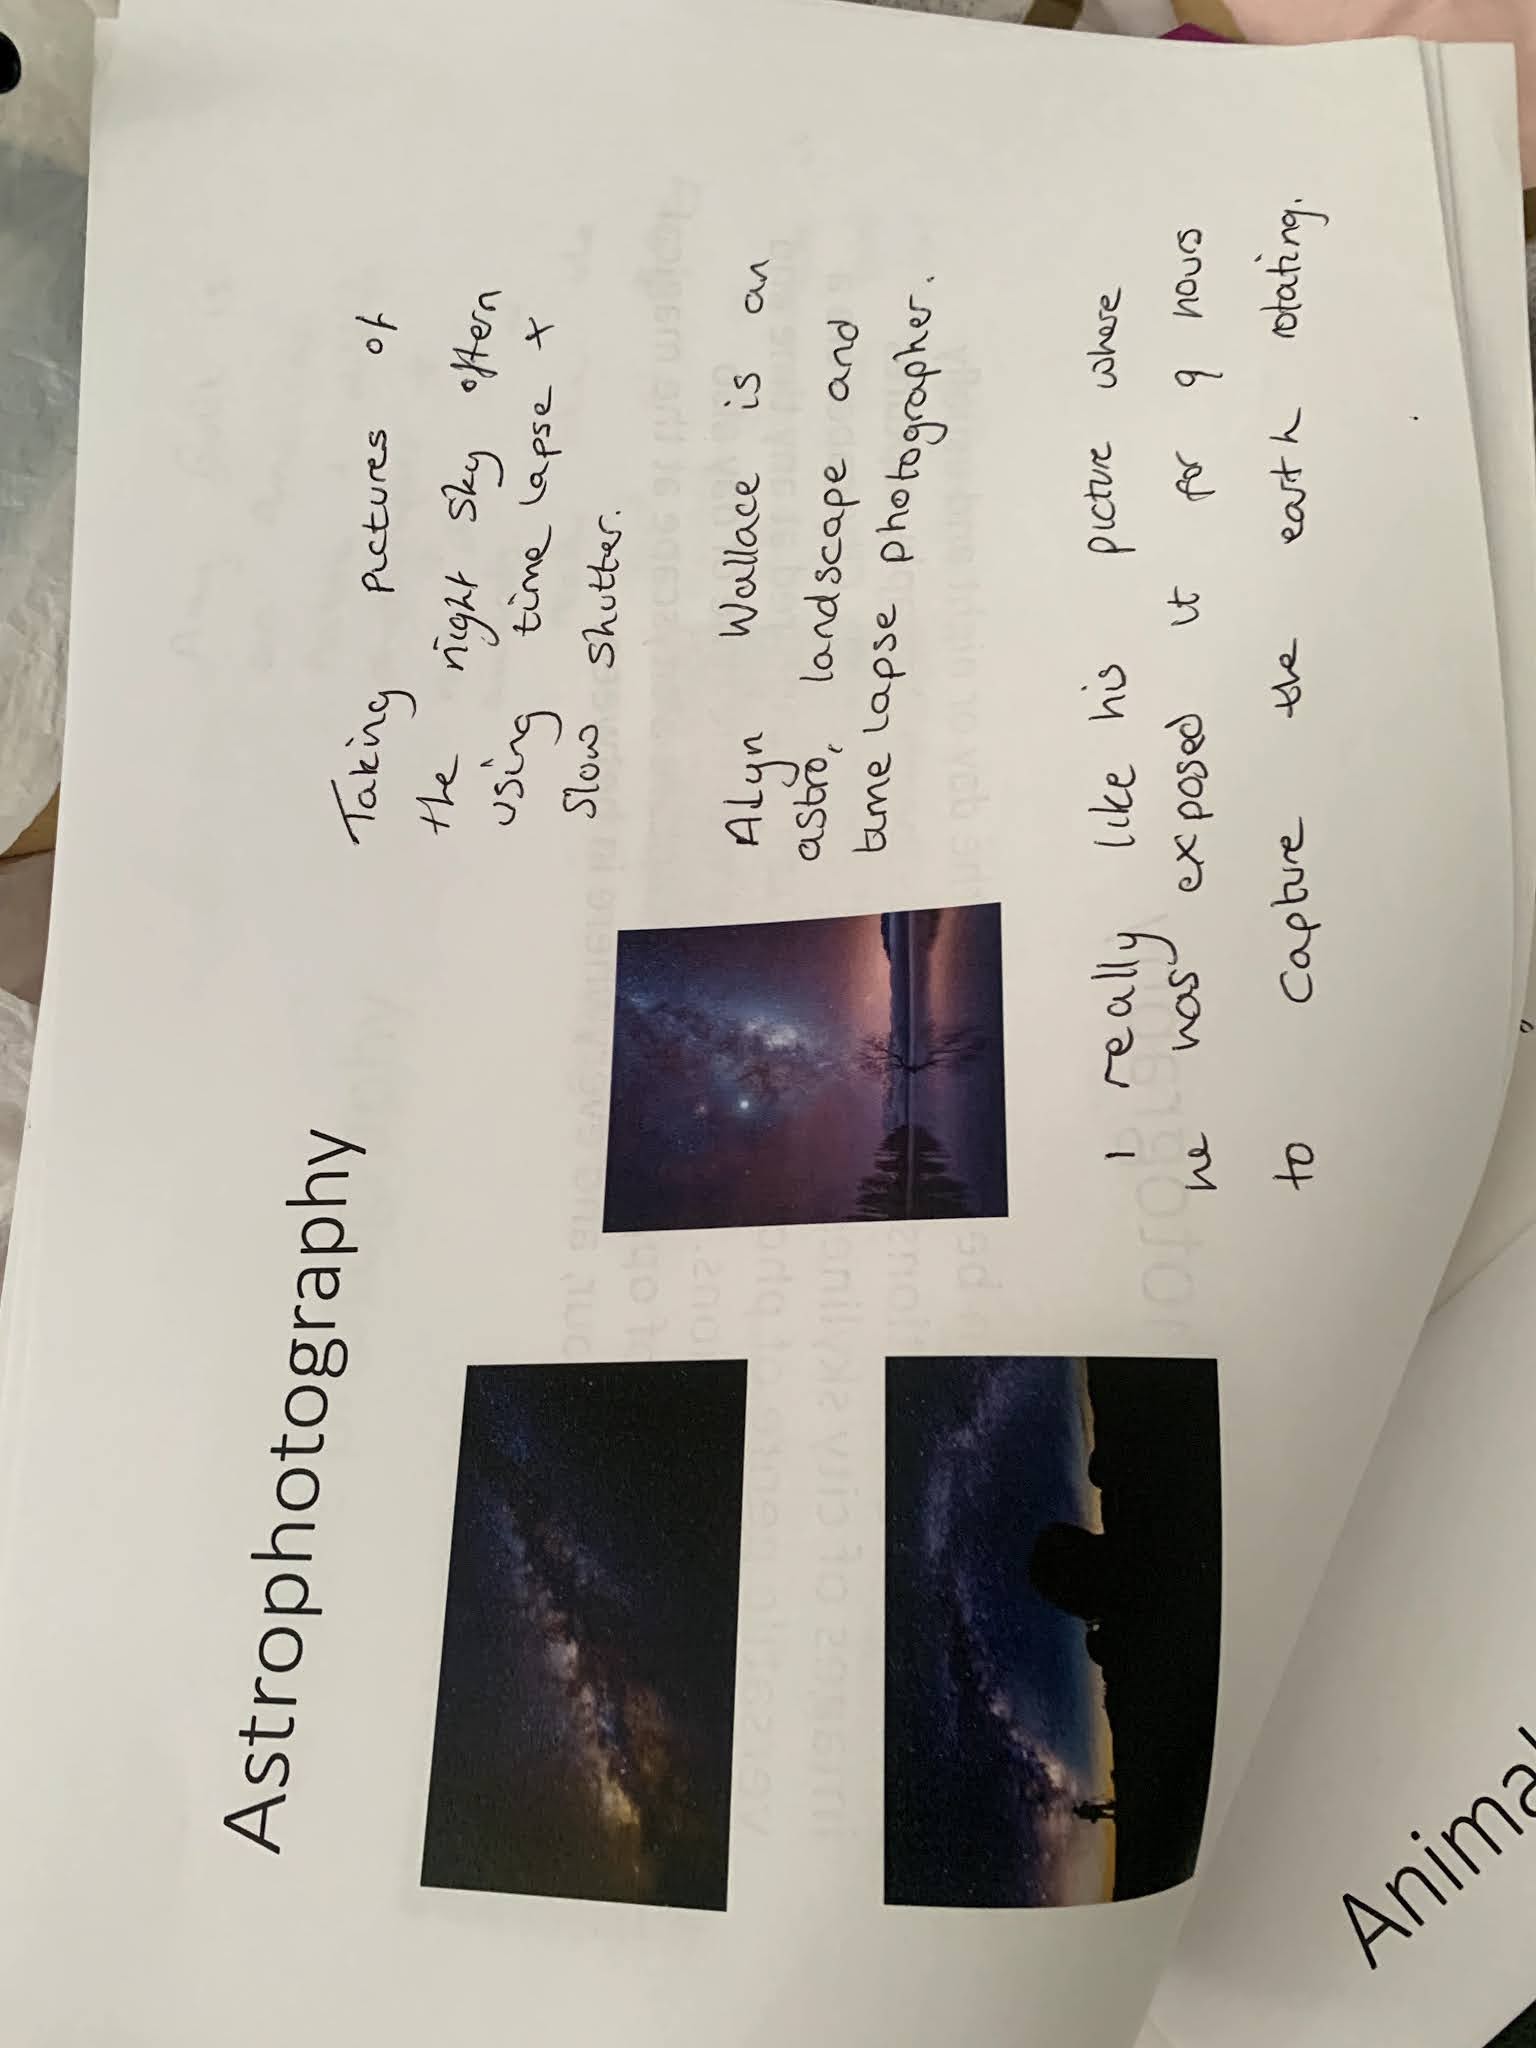 Astrophotography
Taking pictures of
the night sky oftern
using time lapse +
slow shutter.
Alyn Wallace is an
astro, landscape and
time lapse photographer.
I really like his picture where
he has exposed it for 9 hours
to capture the earth rotating.
Animal